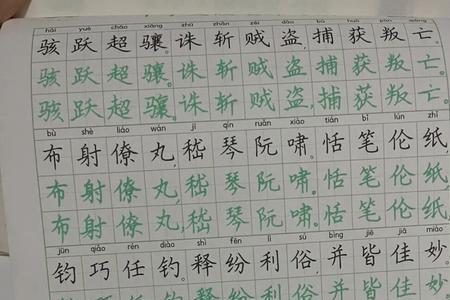 hài yuè chāo xiāng zhū zhǎn zéi dào bǔ huò pàn wáng
骇跃超骧。诛斩贼盗,捕获叛亡。
骇跃超骧。诛斩贼盗,捕获叛亡。
骇跃超骧。诛斩贼盗,捕获叛亡。
bù shè liáo wán jī qín ruǎn xiào tián bǐ lún zhǐ
布射僚丸,嵇琴阮啸。恬笔伦纸,
布射僚丸,嵇琴阮啸。恬笔伦纸,
布射僚丸,嵇琴阮啸。恬笔伦纸,
jūn qiǎo rén diào shì fēn lì sú bìng jiē jiā miào
钧巧任钓。释纷利俗,并皆佳妙